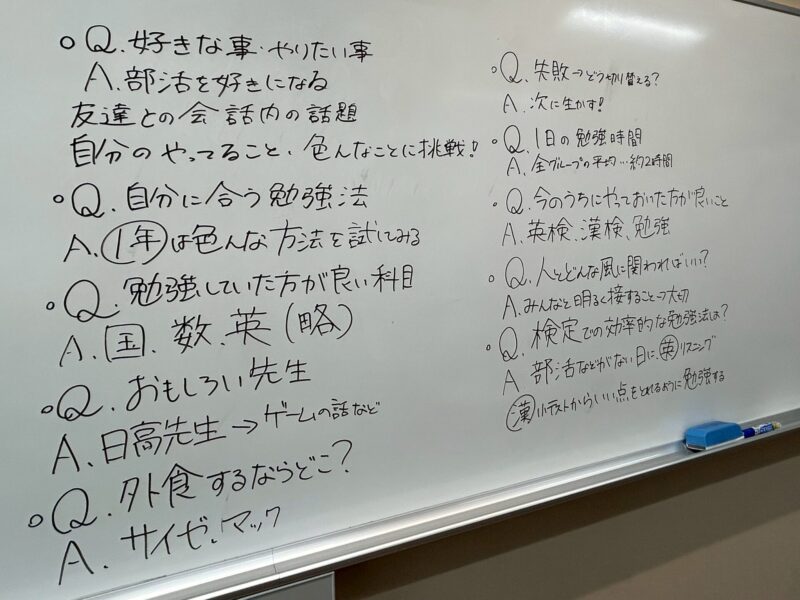 ○Q.好きな事・やりたい事
A.部活を好きになる
友達との会話内の話題
自分のやってること、色んなことに挑戦!
○Q.自分に合う勉強法
A.1年は色んな方法を試してみる
○Q.勉強していた方が良い科目
A.国、数、英(略)
○Q.おもしろい先生
A.日高先生→ゲームの話など
○Q.外食するならどこ?
A.サイゼ、マック
○Q.失敗→どう切り替える?
A.次に生かす!
○Q.1日の勉強時間
A.全グループの平均…約2時間
○Q.今のうちにやっておいた方が良いこと
A.英検、漢検、勉強
○Q.人とどんな風に関わればいい?
A.みんなと明るく接すること→大切
○Q.検定での効率的な勉強法は?
A 部活などがない日に、英リスニング
漢小テストからいい点をとれるように勉強する